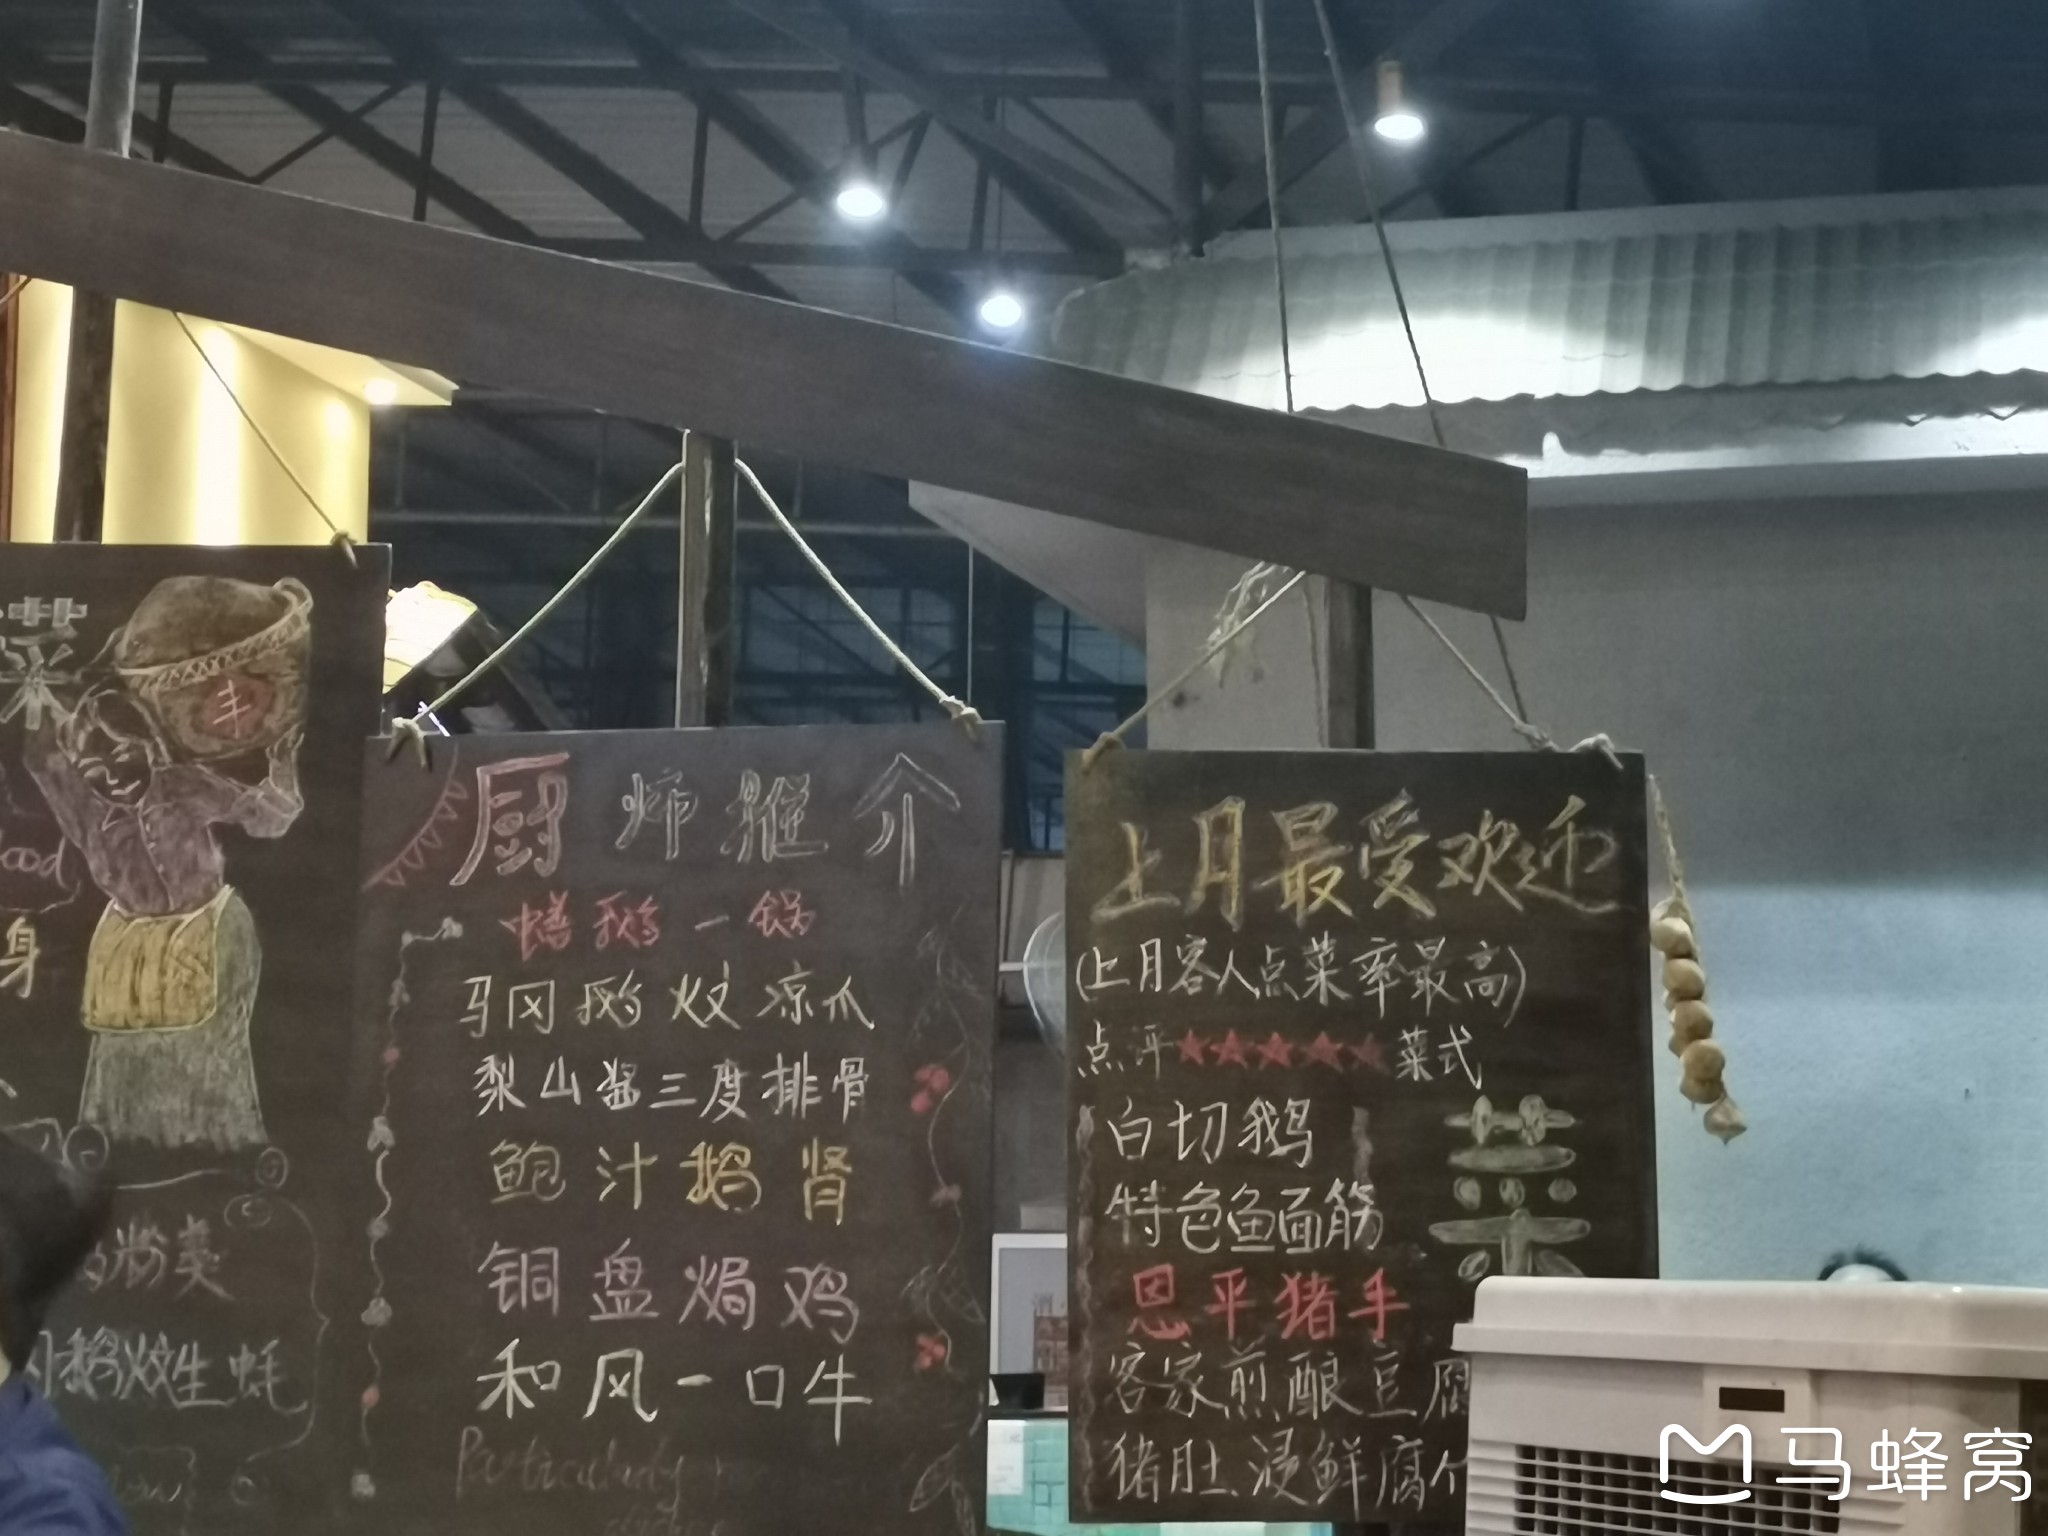 菜
丰
ood
身
粉美
鹅炆生蚝
厨师推介
蟮鹅一锅
马冈鹅炆凉瓜
梨山酱三度排骨
鲍汁鹅肾
铜盘焗鸡
和风一口牛
Particularly
上月最受欢迎
(上月客人点菜率最高)
点评★★★★★菜式
白切鹅
特色鱼面筋
恩平猪手
客家煎酿豆腐
猪肚浸鲜腐
菜
马蜂窝